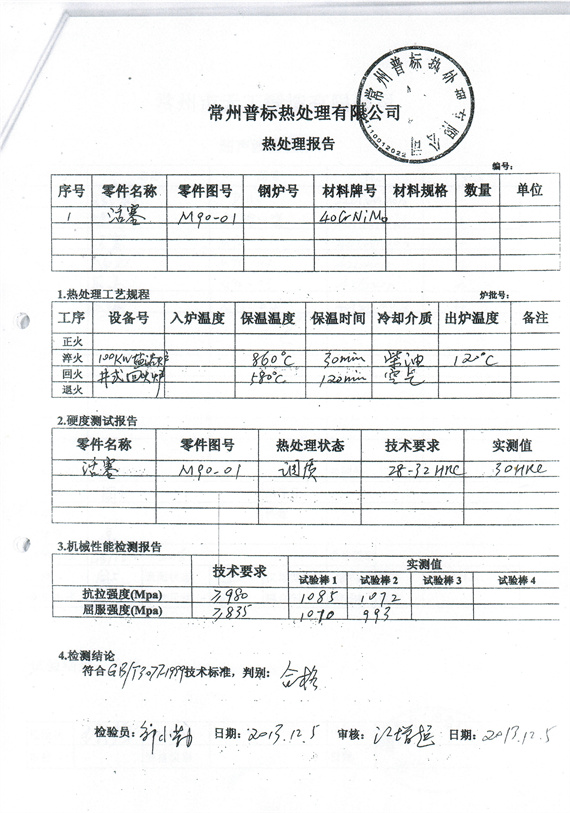 常州普标热处理有限公司
热处理报告
常州普标热处理有限公司
编号：
序号 零件名称 零件图号 钢炉号 材料牌号 材料规格 数量 单位
1 活塞 M90-01 40CrNiMo
1.热处理工艺规程 炉批号：
工序 设备号 入炉温度 保温温度 保温时间 冷却介质 出炉温度 备注
正火
淬火 100KW盐浴炉 860℃ 30min 柴油 120℃
回火 井式回火炉 580℃ 120min 空气
退火
2.硬度测试报告
零件名称 零件图号 热处理状态 技术要求 实测值
活塞 M90-01 调质 28-32HRC 30HRC
3.机械性能检测报告
技术要求 实测值
试验棒1 试验棒2 试验棒3 试验棒4
抗拉强度(Mpa) ≥980 1085 1072
屈服强度(Mpa) ≥835 1010 993
4.检测结论
符合GB/T3077-1999技术标准，判别：合格
检验员： 日期：2013.12.5 审核：江增起 日期：2013.12.5